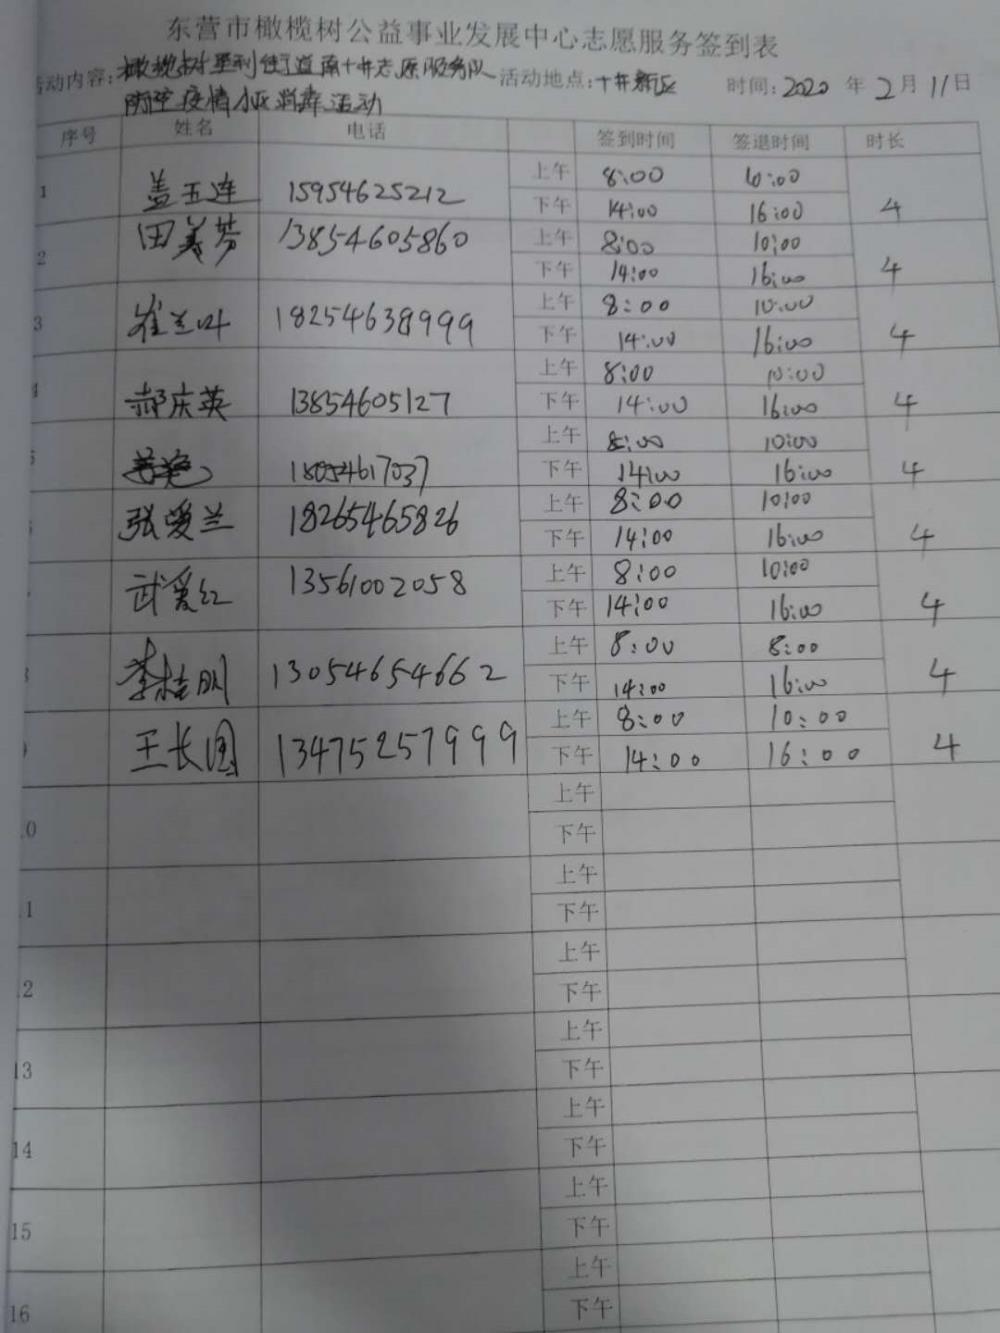 东营市橄榄树公益事业发展中心志愿服务签到表
活动内容:橄榄树垦利街道南十井志愿服务队 活动地点:十井新区 时间:2020年2月11日
防控疫情小区消毒活动
序号 姓名 电话 签到时间 签退时间 时长
1 盖玉连 15954625212 上午 8:00 10:00
下午 14:00 16:00 4
2 田美芬 13854605860 上午 8:00 10:00
下午 14:00 16:00 4
3 崔兰叶 18254638999 上午 8:00 10:00
下午 14:00 16:00 4
4 郝庆英 13854605127 上午 8:00 10:00
下午 14:00 16:00 4
5 18054617037 上午 8:00 10:00
下午 14:00 16:00 4
6 张爱兰 18265465826 上午 8:00 10:00
下午 14:00 16:00 4
武爱红 13561002058 上午 8:00 10:00
下午 14:00 16:00 4
8 李桂明 13054654662 上午 8:00 8:00
下午 14:00 16:00 4
9 王长国 13475257999 上午 8:00 10:00
下午 14:00 16:00 4
10 上午
下午
11 上午
下午
12 上午
下午
13 上午
下午
14 上午
下午
15 上午
下午
16 上午
下午